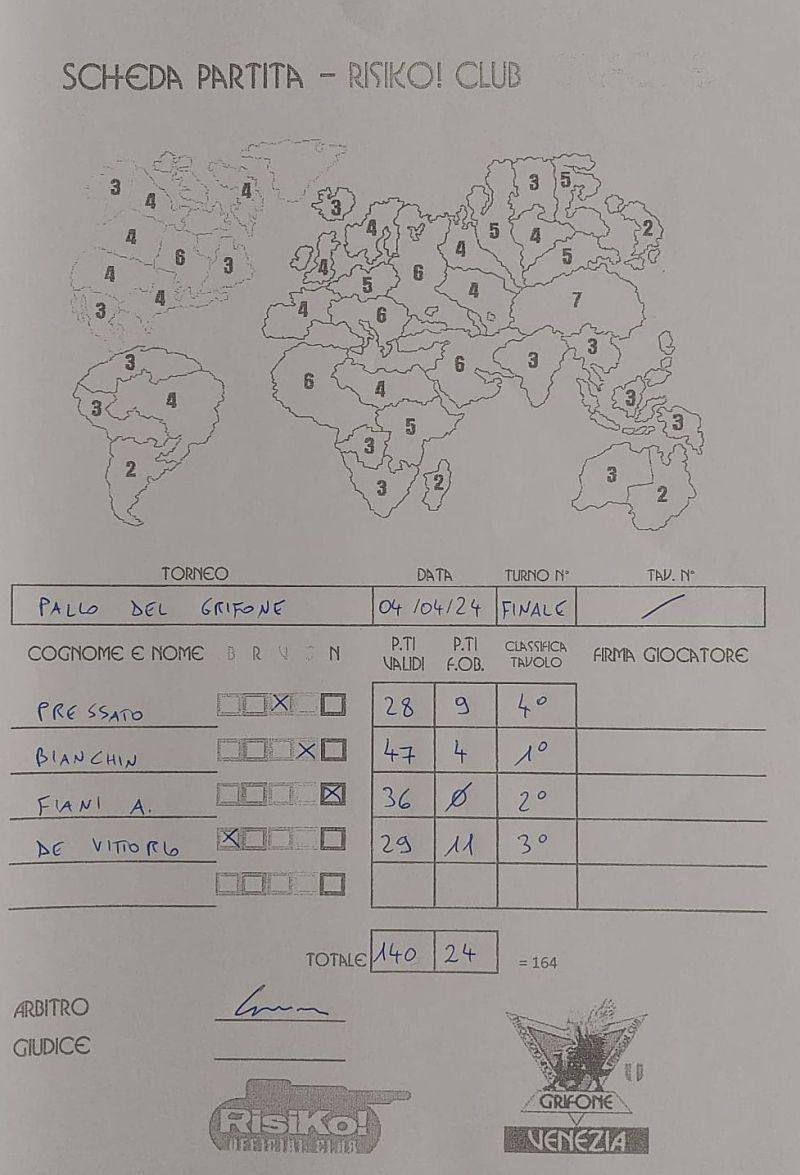 SCHEDA PARTITA – RISIKO! CLUB
3 4 4 3 4 5 3 5 2
4 6 3 4 4 6 4 5 4 5
4 4 3 4 6 4 7
3 6 4 6 3 3
3 4 5 3 3
2 3 3 2 3 2
TORNEO DATA TURNO N° TAV. N°
PALLO DEL GRIFONE 04/04/24 FINALE /
COGNOME E NOME B R V G N P.TI VALIDI P.TI F.OB. CLASSIFICA TAVOLO FIRMA GIOCATORE
PRESSATO X 28 9 4°
BIANCHIN X 47 4 1°
FIANI A. X 36 Ø 2°
DE VITTORIO X 29 11 3°
TOTALE 140 24 = 164
ARBITRO
GIUDICE
RisiKo!
OFFICIAL CLUB
GRIFONE
VENEZIA